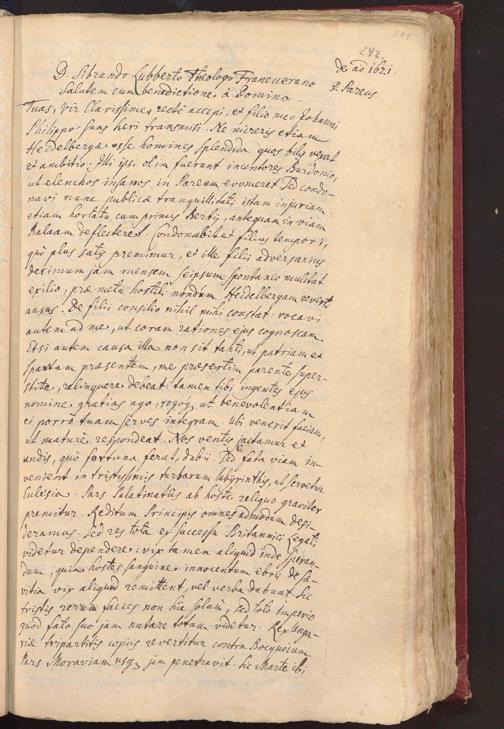 242.
de aᵒ 1621.
D. Pareus
D. Sibrando Lubberto Theologo Franequerano
Salutem cum benedictione à Domino.
Tuas, vir Clarissime, rectè accepi, et filio meo Johanni
Philippo suas heri transmisi. Ne mireris etiam
Heidelbergæ esse homines splendida quos bilis vexat
et ambitio. Illi ipsi olim fuerunt incentores Burdonis,
ut elenchos insanos in Pareum evomeret. Sed condo-
navi nunc publicæ tranquillitati istam injuriam
etiam hortatu cum primis Bertij, antequam in viam
Balaam deflecteret. Condonabit et filius tempori,
quo plus satis premimur, et ille filii adversarius
decimum jam mensem seipsum spontaneo mulctat
exilio, præ metu hostili nondum Heidelbergam reverti
ausus. De filii consilio nihil mihi constat: vocavi
autem ad me, ut coram rationes ejus cognoscam.
Etsi autem causa illa non sit tanti, ut patriam ex
spartam præsentem, me præsertim parente super-
stite, relinquere debeat: tamen tibi ingentes ejus
nomine gratias ago, rogoq, ut benevolentiam
ei porrò tuam serves integram. Ubi venerit faciam,
ut maturè respondeat. Nos ventis jactamur et
undis, quò fortuna ferat, dubii. Sed fata viam in-
venient in tristissimis turbarum labyrinthis, ut servetur
Ecclesia. Pars Palatinatus ab hoste reliquo graviter
premitur. Reditum Principis omnes admodum desi-
deramus. Sed res tota ex successu Britannici Legati
videtur dependere: vix tamen aliquid inde speran-
dum, quia hostes sanguine innocentum ebrii de sæ-
vitia vix aliquid remittent, vel verba dabunt. Hæc
tristis rerum facies non hic solùm, sed toto Imperio
quod fato suo jam nutare totum videtur. Rex Unga-
riæ tripartitis copiis revertitur contra Bucquoium
Pars Moraviam usq, jam penetravit. Hic Marte ibi